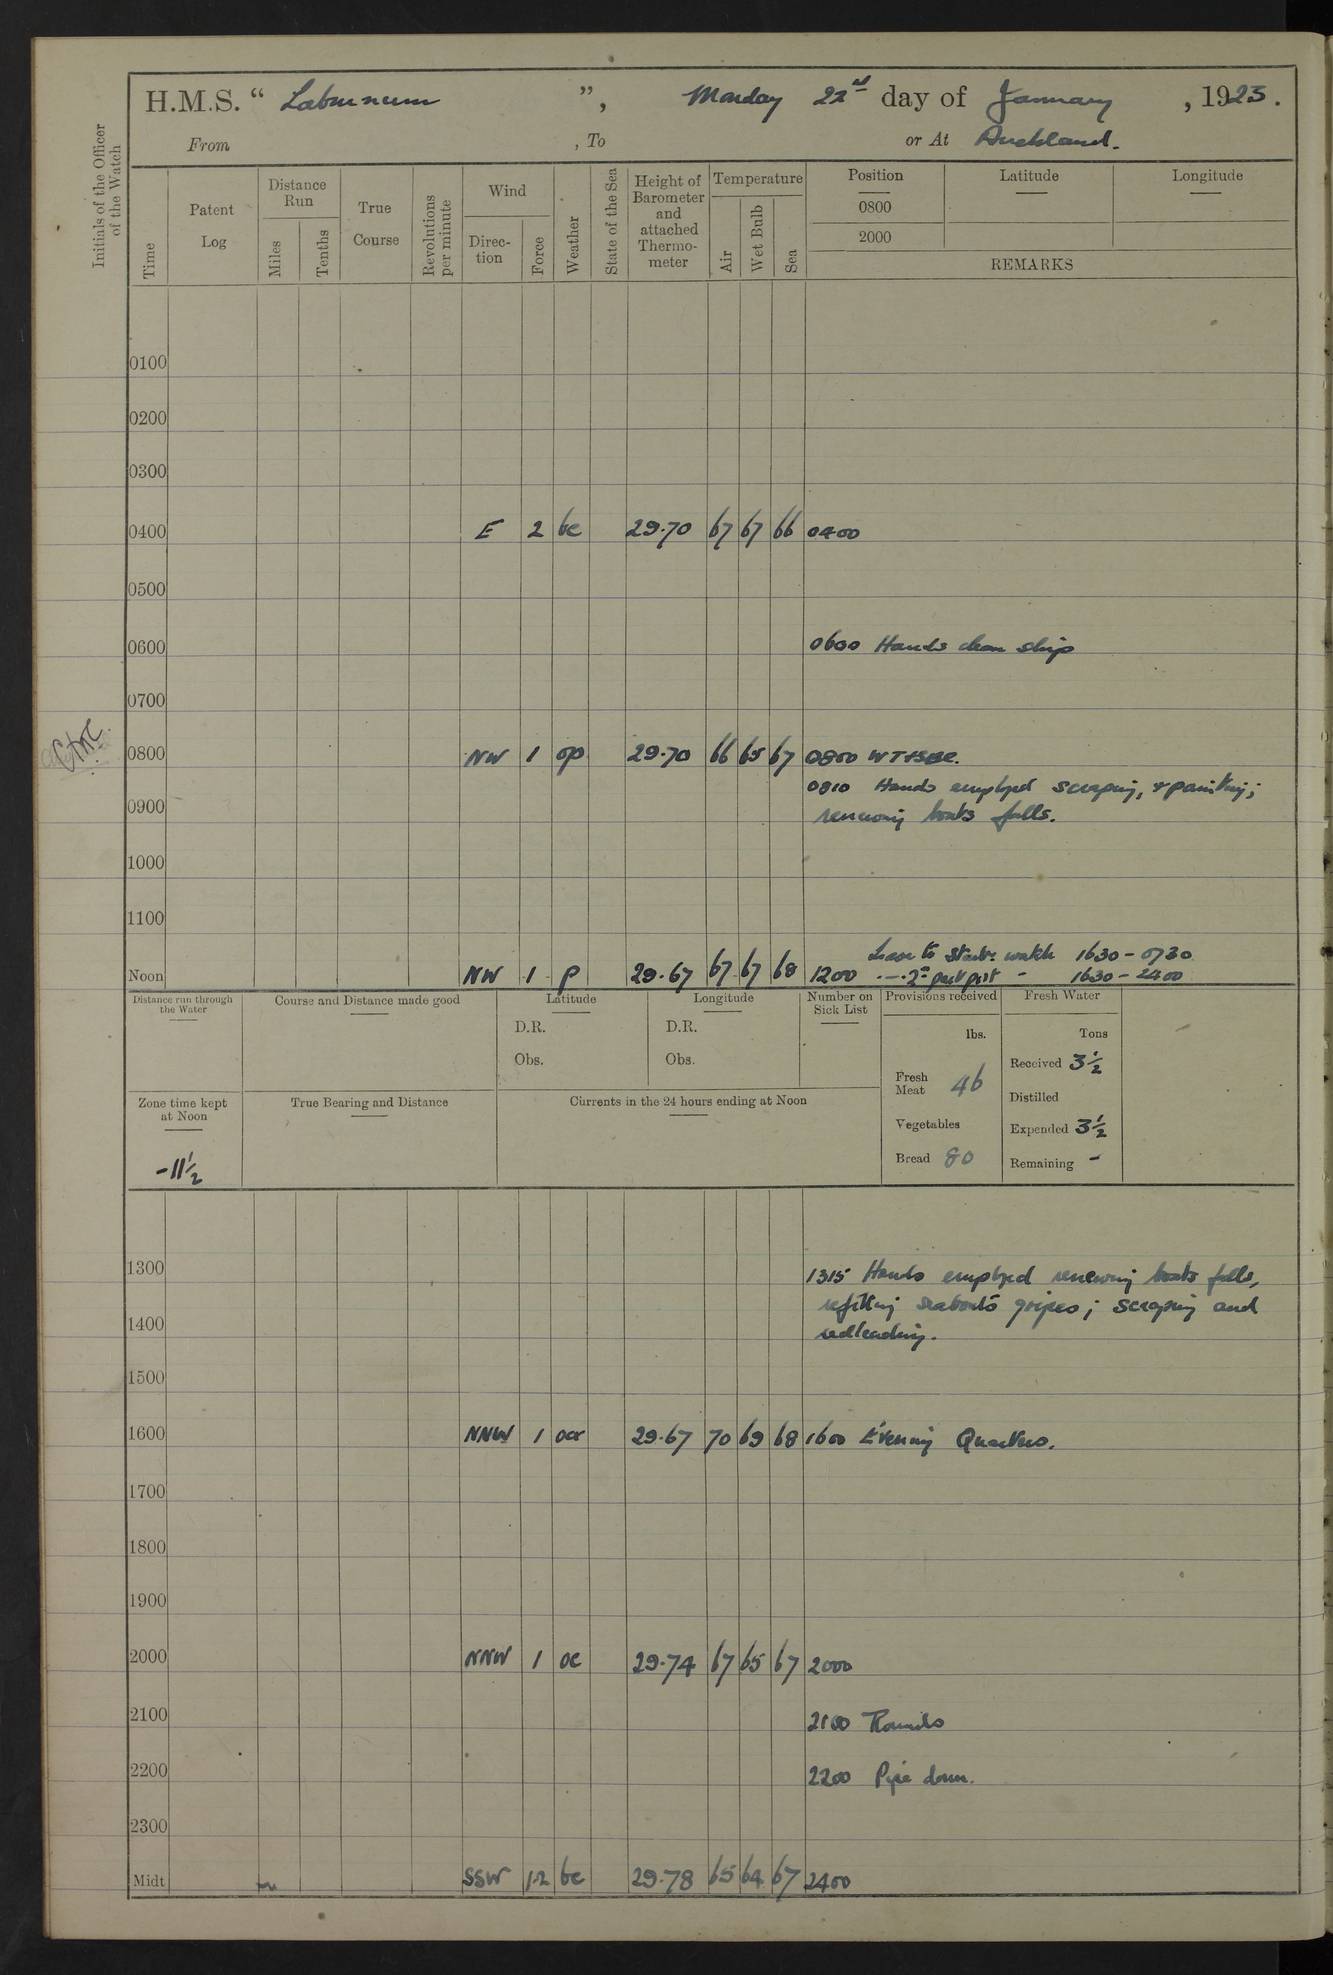 H.M.S. “ Laburnum ”, Monday 22nd day of January , 1923.
From , To or At Auckland.
Initials of the Officer of the Watch
Time
Patent Log
Distance Run
Miles
Tenths
True Course
Revolutions per minute
Wind
Direc-tion
Force
Weather
State of the Sea
Height of Barometer and attached Thermo-meter
Temperature
Air
Wet Bulb
Sea
Position
0800
2000
Latitude
Longitude
REMARKS
0100
0200
0300
0400 E 2 bc 29.70 67 67 66 0400
0500
0600 0600 Hands clean ship
0700
0800 NW 1 op 29.70 66 65 67 0800
0810 Hands employed scraping, & painting;
0900 renewing boats falls.
1000
1100
Leave to Starb. watch 1630 - 0730
Noon NW 1 p 29.67 67 67 68 1200 - 2nd part port - 1630 - 2400
Distance run through the Water
Course and Distance made good
Latitude
D.R.
Obs.
Longitude
D.R.
Obs.
Number on Sick List
Provisions received
lbs.
Fresh Meat 46
Vegetables
Bread 80
Fresh Water
Tons
Received 3½
Distilled
Expended 3½
Remaining -
Zone time kept at Noon
-11½
True Bearing and Distance
Currents in the 24 hours ending at Noon
1300 1315 Hands employed renewing boats falls,
refitting seaboats gripes; scraping and
1400 redleading.
1500
1600 NNW 1 ocr 29.67 70 69 68 1600 Evening Quarters.
1700
1800
1900
2000 NNW 1 oc 29.74 67 65 67 2000
2100 2100 Rounds
2200 2200 Pipe down.
2300
Midt SSW 1.2 bc 29.78 65 64 67 2400